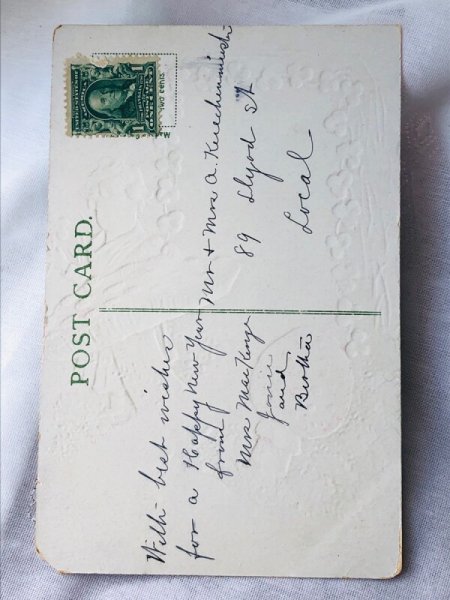 POST CARD.
two cents
With best wishes
for a Happy New Year
from
Mrs MacKenzie
and
Bertha
Mr + Mrs A.
89 Llyod St
Local